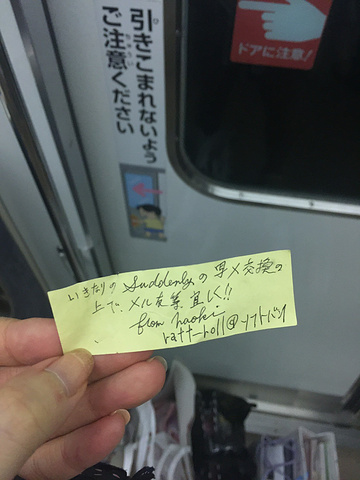 引きこまれないよう
ご注意ください
ちゅうい
ドアに注意!
いきなりの Suddenlyの 写メ交換の
上で、メル友等宜しく!!
from naoki
ratt-roll@ソフトバンク